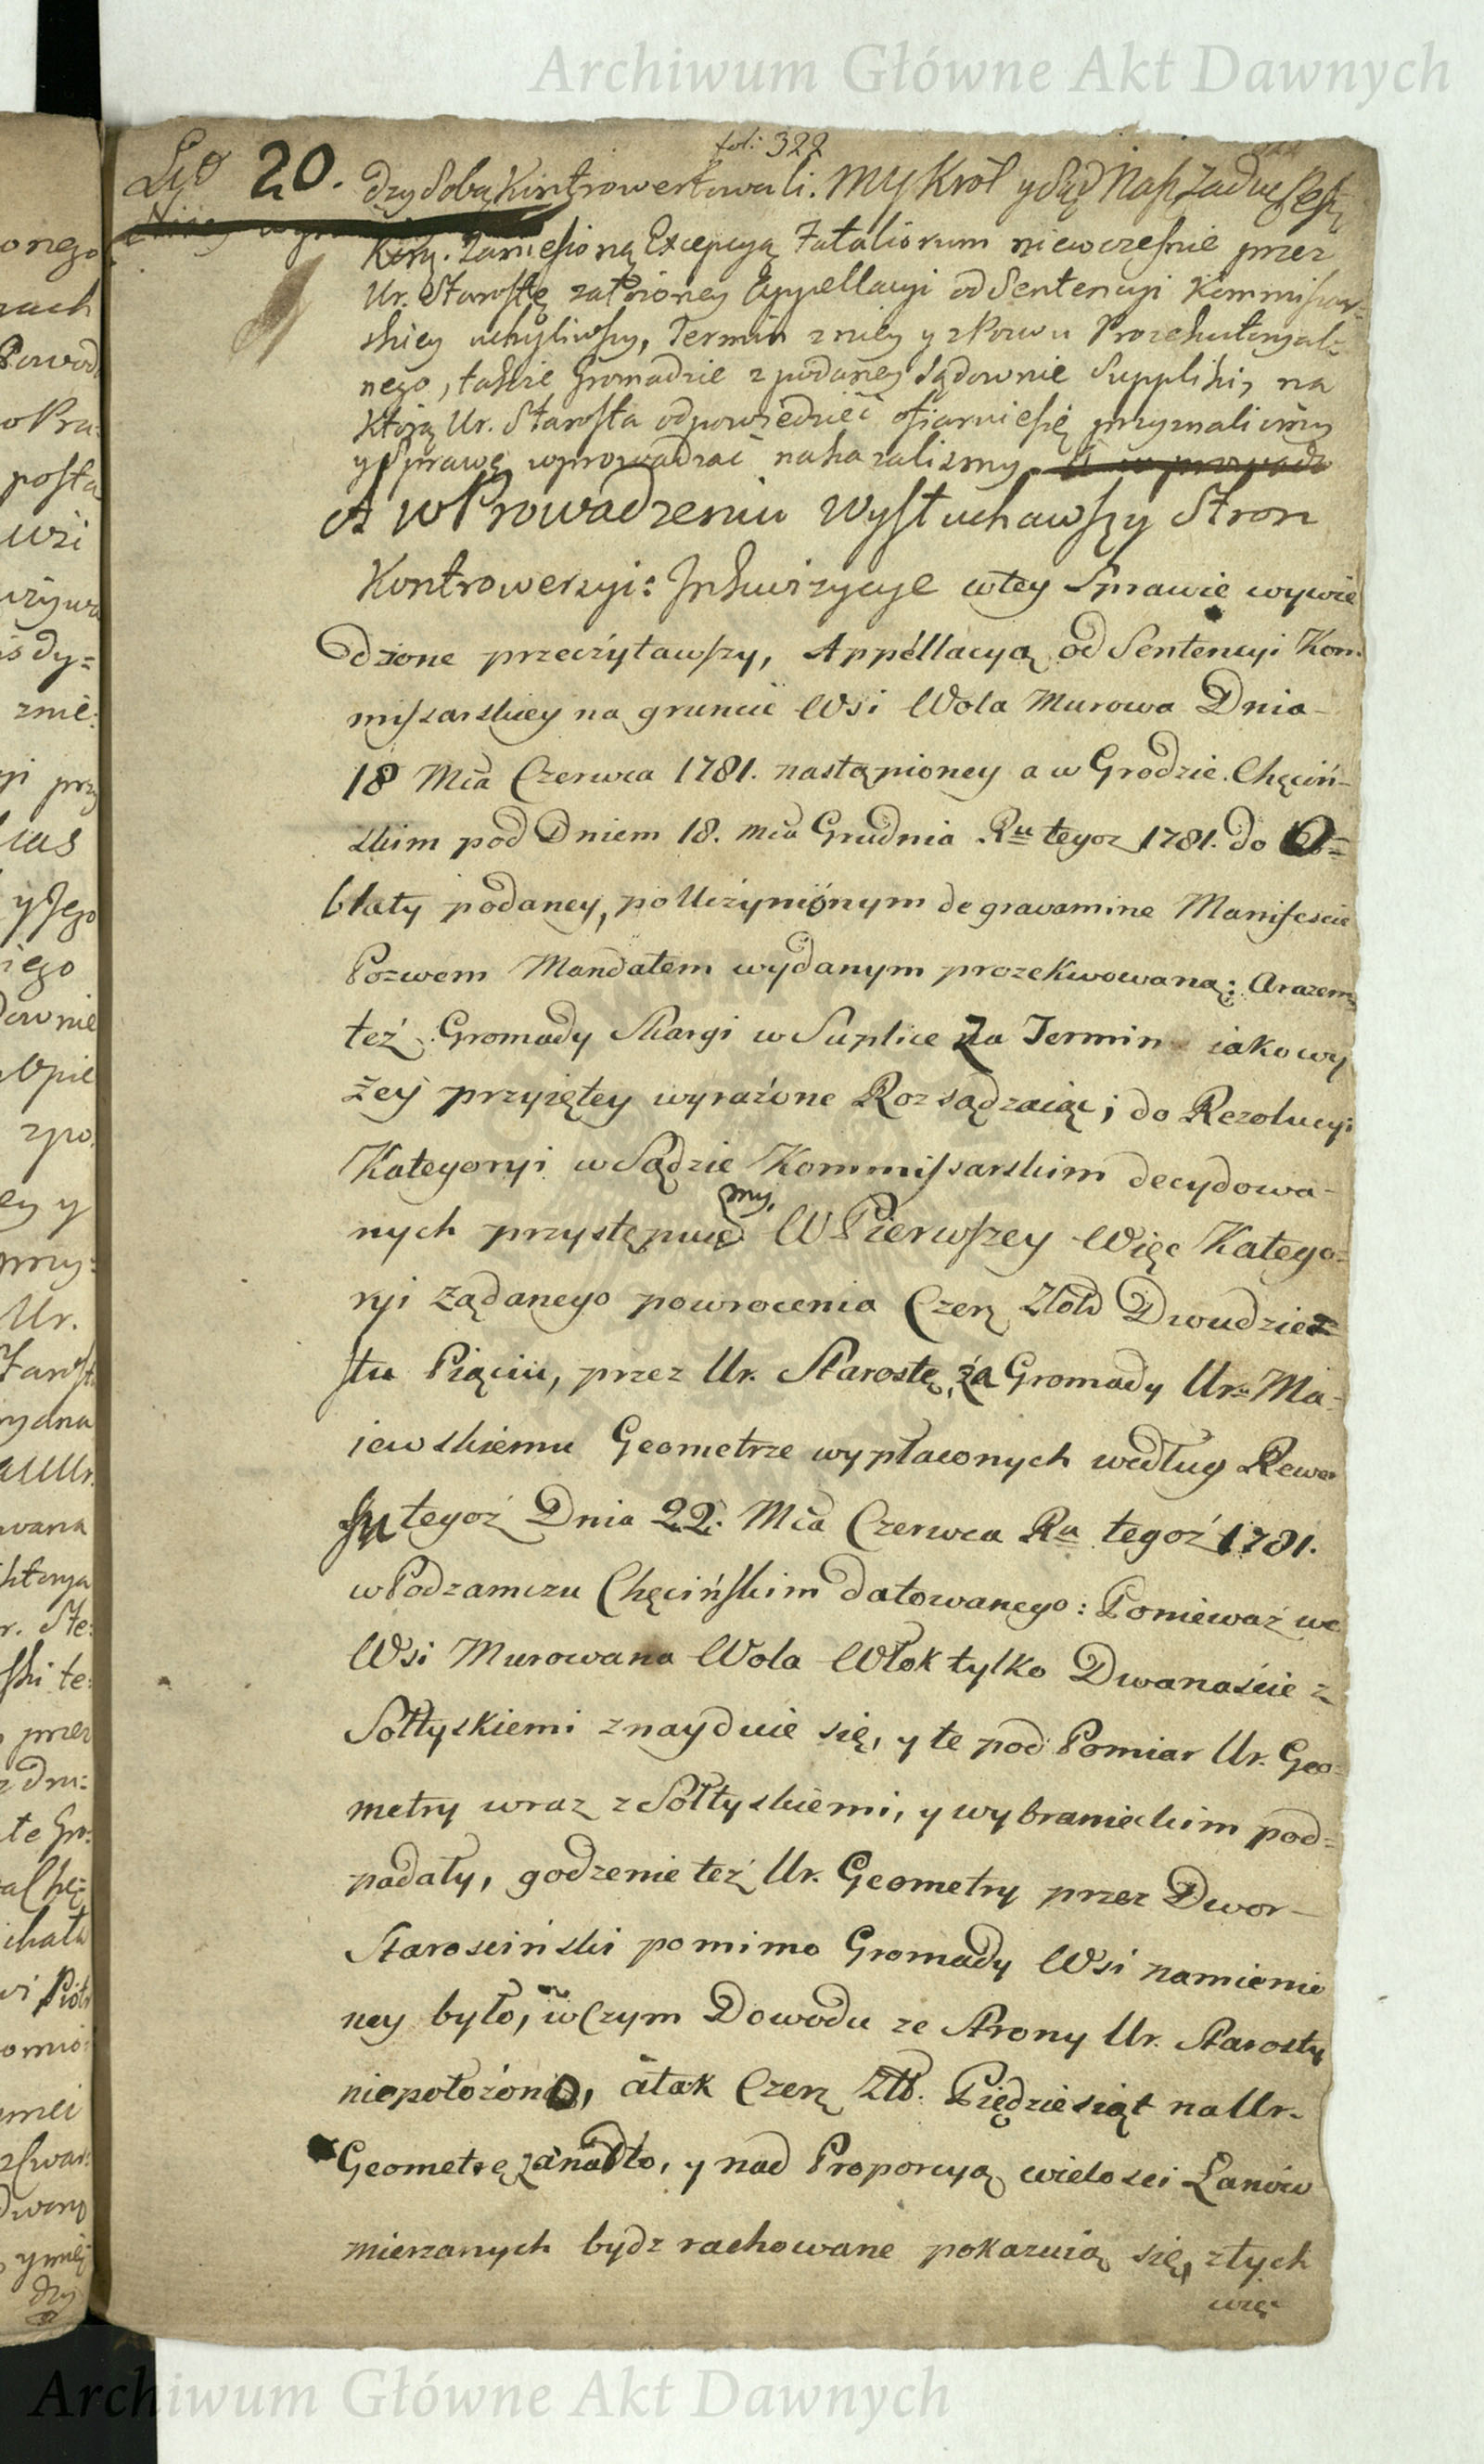 Archiwum Główne Akt Dawnych
fol: 322
20. dzy Sobą Kontrowertowali. My Król y Sąd Nasz Zadwe
Kory. Zaniesioną Excepcyą Fataliorum niewczesnie przez
Ur. Starostę założoney Appellacyi od Sentencyi Kommissar-
skiey uchyliwszy, Termin z niey y z Pozwu Prozekutoryal-
nego, także Gromadzie z podaney Sądownie Suppliki, na
Którą Ur. Starosta odpowiedzieć ofiaruie się przyznalismy
y Sprawę wprowadzać nakazalismy.
A w Prowadzeniu Wysłuchawszy Stron
Kontrowersyi: Inkwizycye w tey Sprawie wywie
dzione przeczytawszy, Appellacyą od Sentencyi Kom
missarskiey na gruncie Wsi Wola Murowa Dnia
18 Mca Czerwca 1781. nastąpioney a w Grodzie Chęciń-
skim pod Dniem 18. mca Grudnia Ru tegoz 1781. do O=
blaty podaney, po Uczynionym de gravamine Manifescie
Pozwem Mandatem wydanym prozekwowaną: a razem
też Gromady Skargi w Suplice Za Termin iakowy
żey przyiętey wyrażone Rozsądzaiąc; do Rezolucyi
Kategoryi w Sądzie Kommissarskim decydowa-
my,
nych przystępuie W Pierwszey Więc Katego=
ryi Żądanego powrocenia Czer Złotch Dwudzies=
stu Piąciu, przez Ur. Starostę, za Gromady Ur. Ma-
iewskiemu Geometrze wypłaconych według Rewer
su tegoż Dnia 22. Mca Czerwca Ru tegoż 1781.
w Podzamczu Chęcińskim datowanego: Ponieważ we
Wsi Murowana Wola Włok tylko Dwanaście z
Sołtyskiemi znayduie się, y te pod Pomiar Ur. Geo=
metry wraz z Sołtyskiemi, y wybranieckim pod=
padały, godzenie też Ur. Geometry przez Dwor
Starosciński pomimo Gromady Wsi namienio
ney było, w Czym Dowodu ze Strony Ur. Starosty
niepołożono, a tak Czer Złt. Pięćdziesiąt na Ur.
Geometrę zanadto, y nad Proporcyą wielosci Łanów
mierzanych bydz rachowane pokazuią się, z tych
więc
Archiwum Główne Akt Dawnych